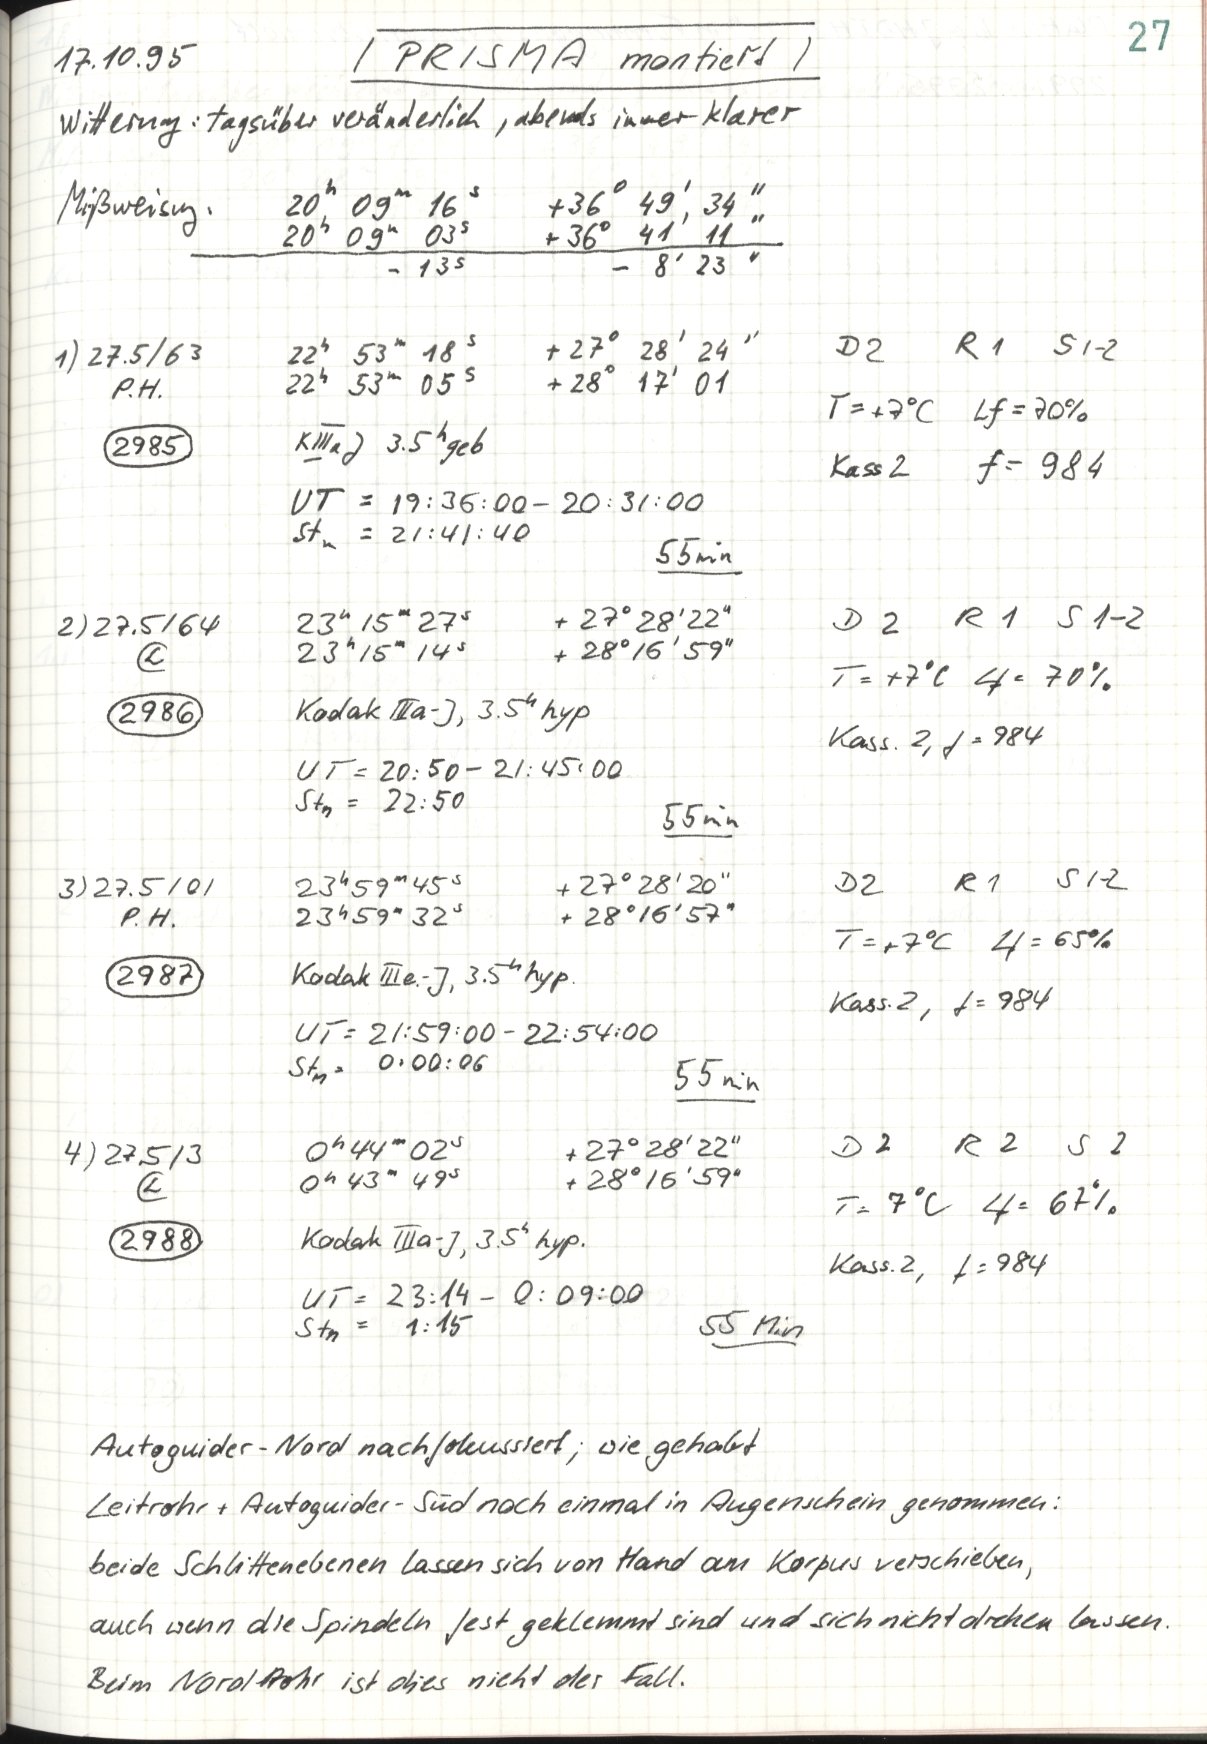 27
17.10.95 | PRISMA montiert |
Witterung: tagsüber veränderlich, abends immer klarer
Mißweisung: 20h 09m 16s +36° 49' 34"
20h 09m 03s +36° 41' 11"
- 13s - 8' 23"
1) 27.5/63 22h 53m 18s +27° 28' 24" D2 R1 S1-2
P.H. 22h 53m 05s +28° 17' 01
T=+7°C Lf=70%
2985 KIIIaJ 3.5h geb
Kass 2 f= 984
UT = 19:36:00 - 20:31:00
Stm = 21:41:40
55min
2) 27.5/64 23h 15m 27s +27° 28' 22" D2 R1 S1-2
23h 15m 14s +28° 16' 59"
T=+7°C Lf= 70%
2986 Kodak IIIa-J, 3.5h hyp
Kass. 2, f=984
UT= 20:50 - 21:45:00
Stm = 22:50
55min
3) 27.5/01 23h 59m 45s +27° 28' 20" D2 R1 S1-2
P.H. 23h 59m 32s +28° 16' 57"
T=+7°C Lf=65%
2987 Kodak IIIa-J, 3.5h hyp.
Kass.2, f=984
UT= 21:59:00 - 22:54:00
Stm= 0:00:06
55min
4) 27.5/3 0h 44m 02s +27° 28' 22" D2 R2 S2
0h 43m 49s +28° 16' 59"
T= 7°C Lf= 67%
2988 Kodak IIIa-J, 3.5h hyp.
Kass.2, f=984
UT= 23:14 - 0:09:00
Stm = 1:15
55 Min
Autoguider-Nord nachfokussiert; wie gehabt
Leitrohr + Autoguider-Süd noch einmal in Augenschein genommen:
beide Schlittenebenen lassen sich von Hand am Korpus verschieben,
auch wenn die Spindeln fest geklemmt sind und sich nicht drehen lassen.
Beim Nord Rohr ist dies nicht der Fall.